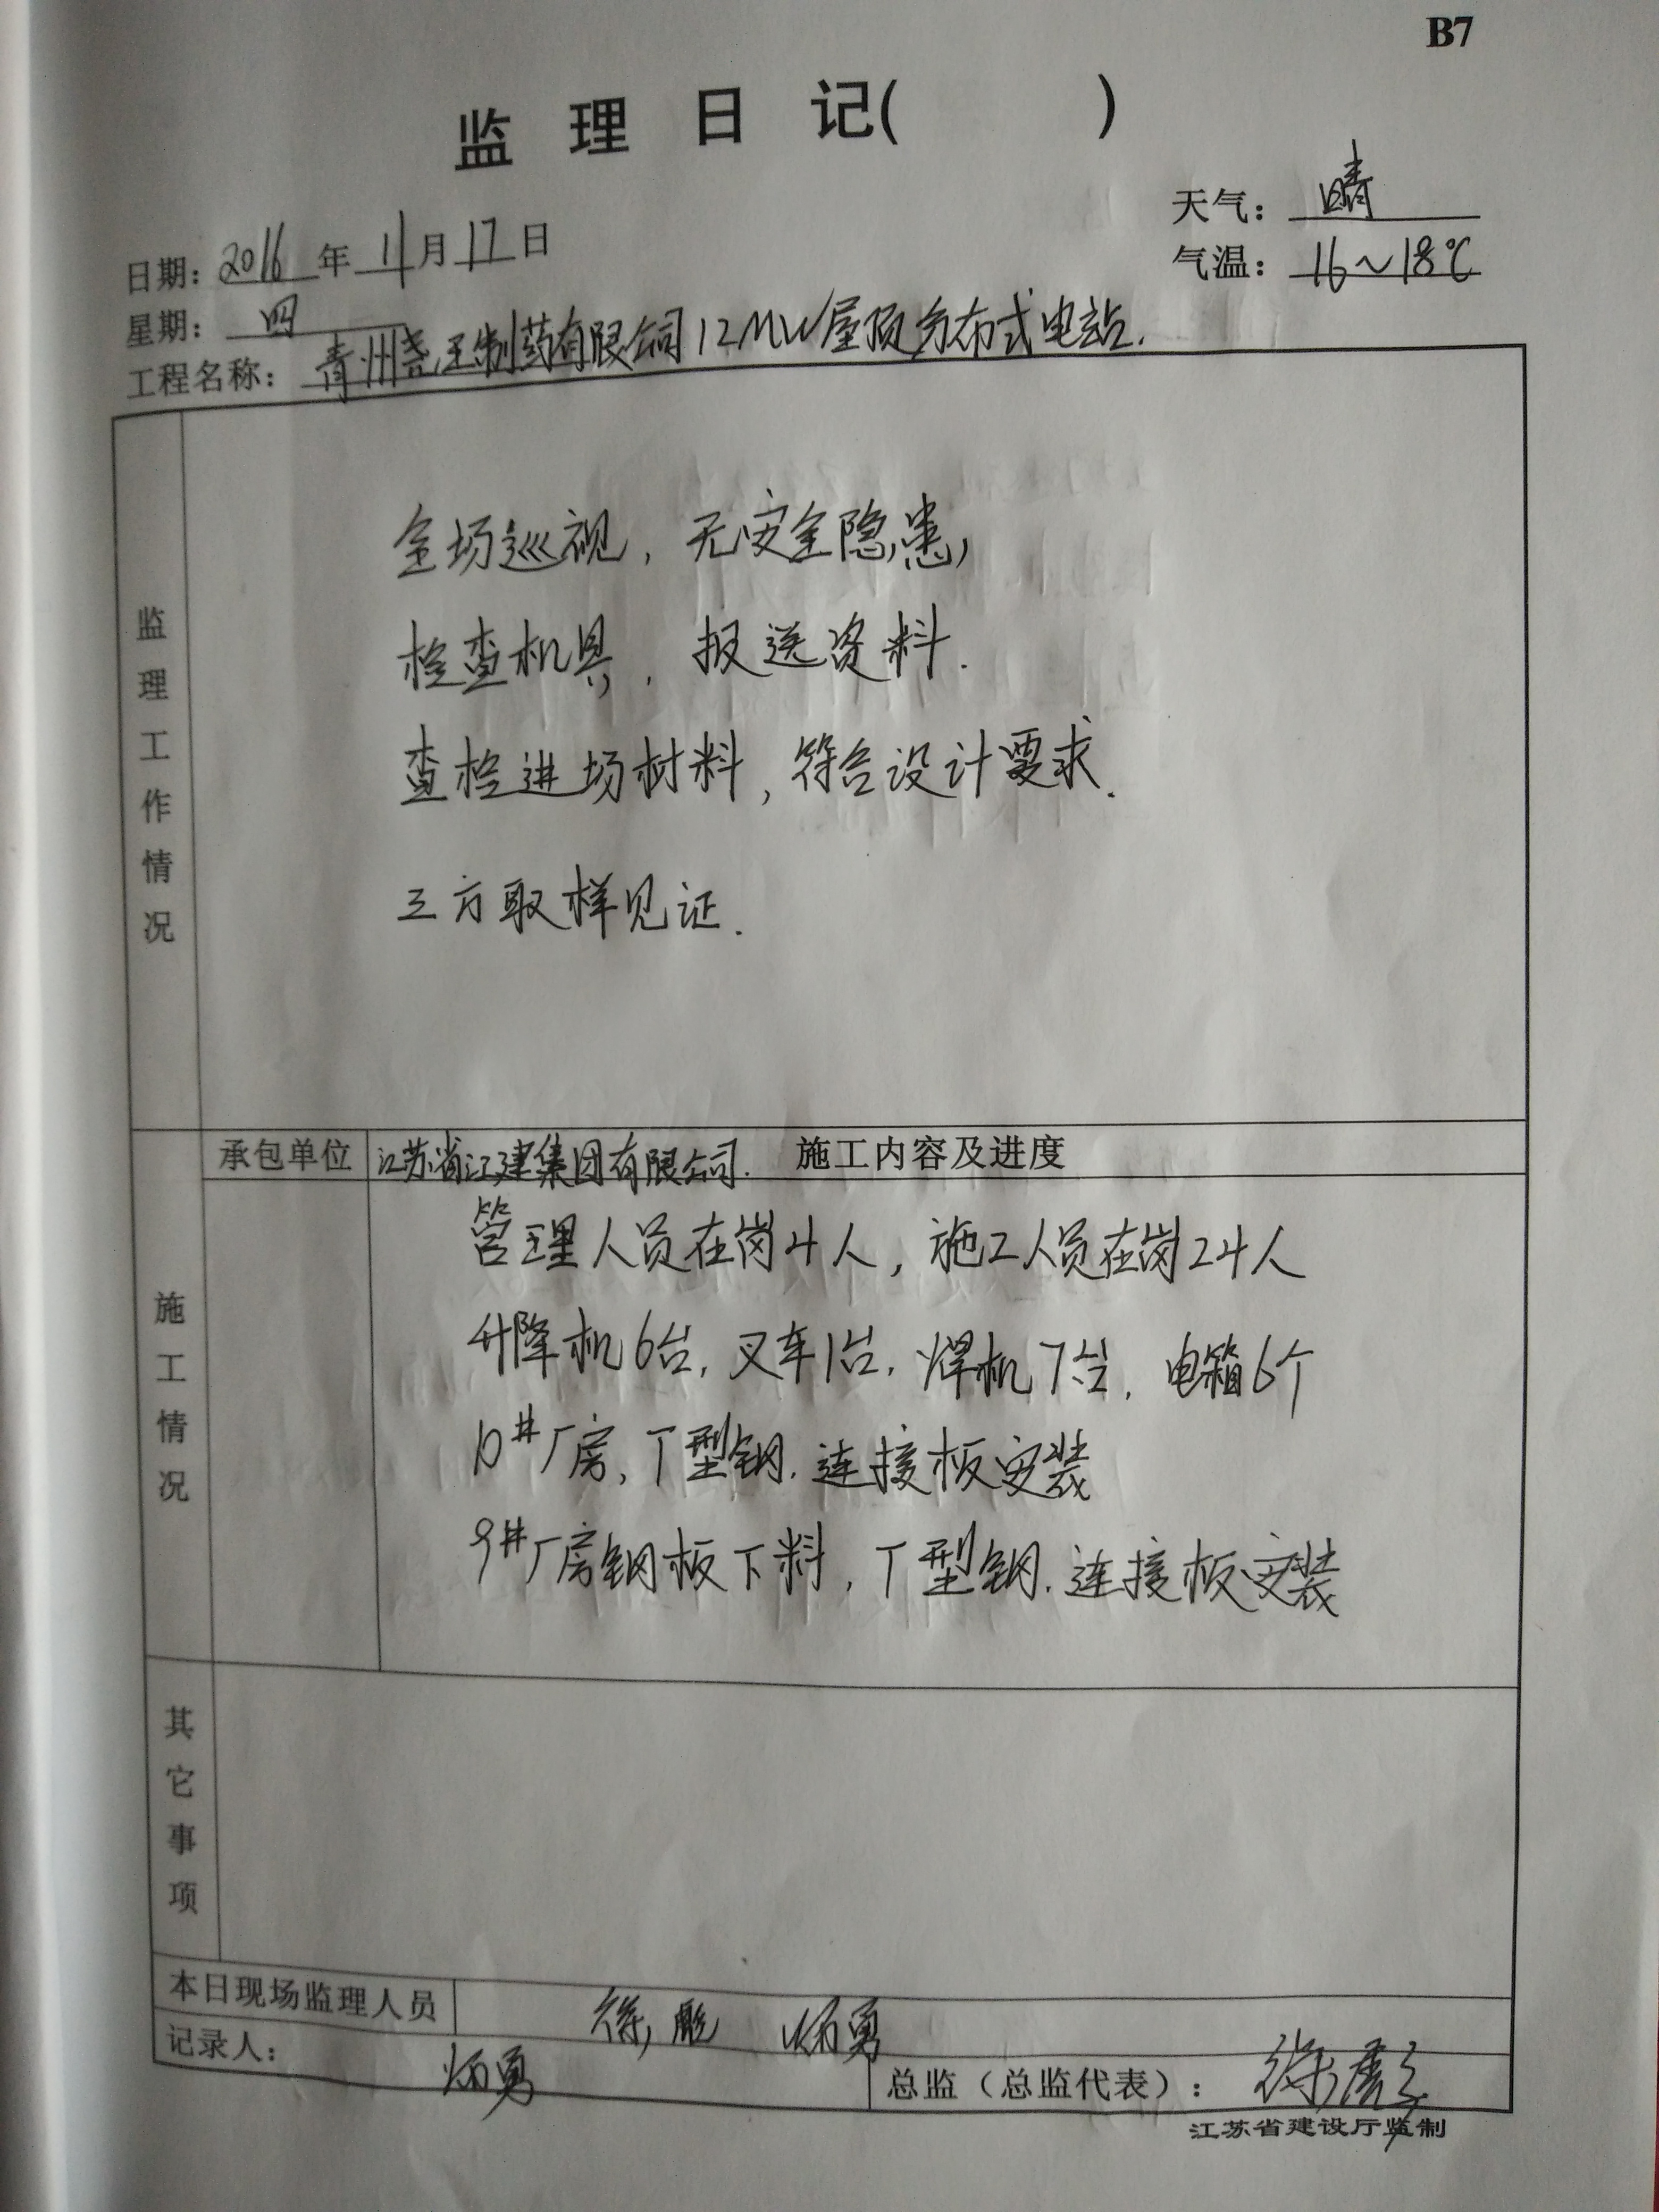 B7
监理日记(        )
天气：晴
日期：2016年11月17日
气温：16~18℃
星期：四
工程名称：青州尧王制药有限公司12MW屋顶分布式电站.
监理工作情况
全场巡视，无安全隐患，
检查机具，报送资料.
查检进场材料，符合设计要求.
三方取样见证.
承包单位 江苏省江建集团有限公司. 施工内容及进度
施工情况
管理人员在岗4人，施工人员在岗24人
升降机6台，叉车1台，焊机7台，电箱6个
10#厂房，T型钢.连接板安装
9#厂房钢板下料，T型钢.连接板安装
其它事项
本日现场监理人员 徐 勇
记录人： 勇
总监（总监代表）：徐
江苏省建设厅监制